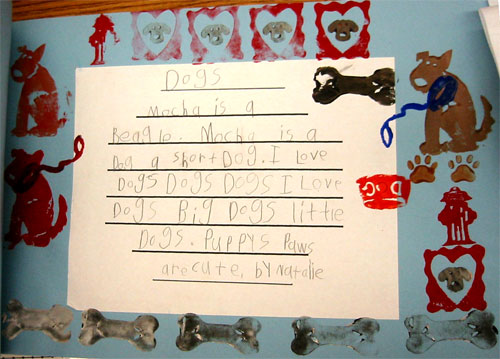 Dogs
Mocha is a
Beagle. Mocha is a
Dog a short Dog. I love
Dogs Dogs Dogs I Love
Dogs Big Dogs little
Dogs. Puppys Paws
are cute, by Natalie
DOG